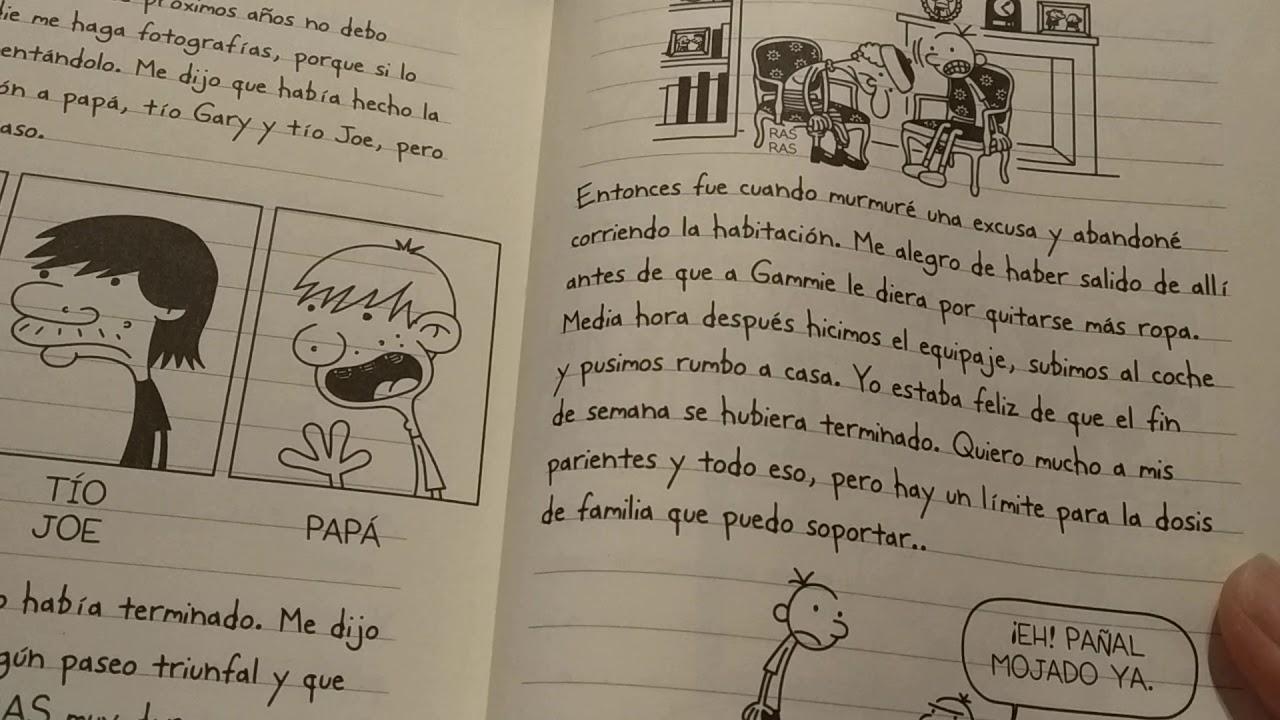 próximos años no debo
me haga fotografías, porque si lo
Me dijo que había hecho la
a papá, tío Gary y tío Joe, pero
TÍO
JOE
PAPÁ
había terminado. Me dijo
paseo triunfal y que
RAS
RAS
Entonces fue cuando murmuré una excusa y abandoné
corriendo la habitación. Me alegro de haber salido de allí
antes de que a Gammie le diera por quitarse más ropa.
Media hora después hicimos el equipaje, subimos al coche
y pusimos rumbo a casa. Yo estaba feliz de que el fin
de semana se hubiera terminado. Quiero mucho a mis
parientes y todo eso, pero hay un límite para la dosis
de familia que puedo soportar..
¡EH! PAÑAL
MOJADO YA.